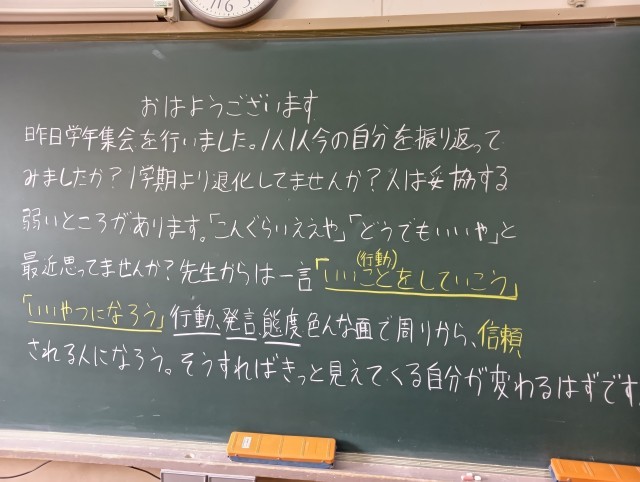 おはようございます
昨日学年集会を行いました。1人1人今の自分を振り返って
みましたか?1学期より退化してませんか?人は妥協する
弱いところがあります。「こんぐらいええや」「どうでもいいや」と
最近思ってませんか?先生からは一言「いいことをしていこう」
(行動)
「いいやつになろう」行動、発言、態度色んな面で周りから、信頼
される人になろう。そうすればきっと見えてくる自分が変わるはずです